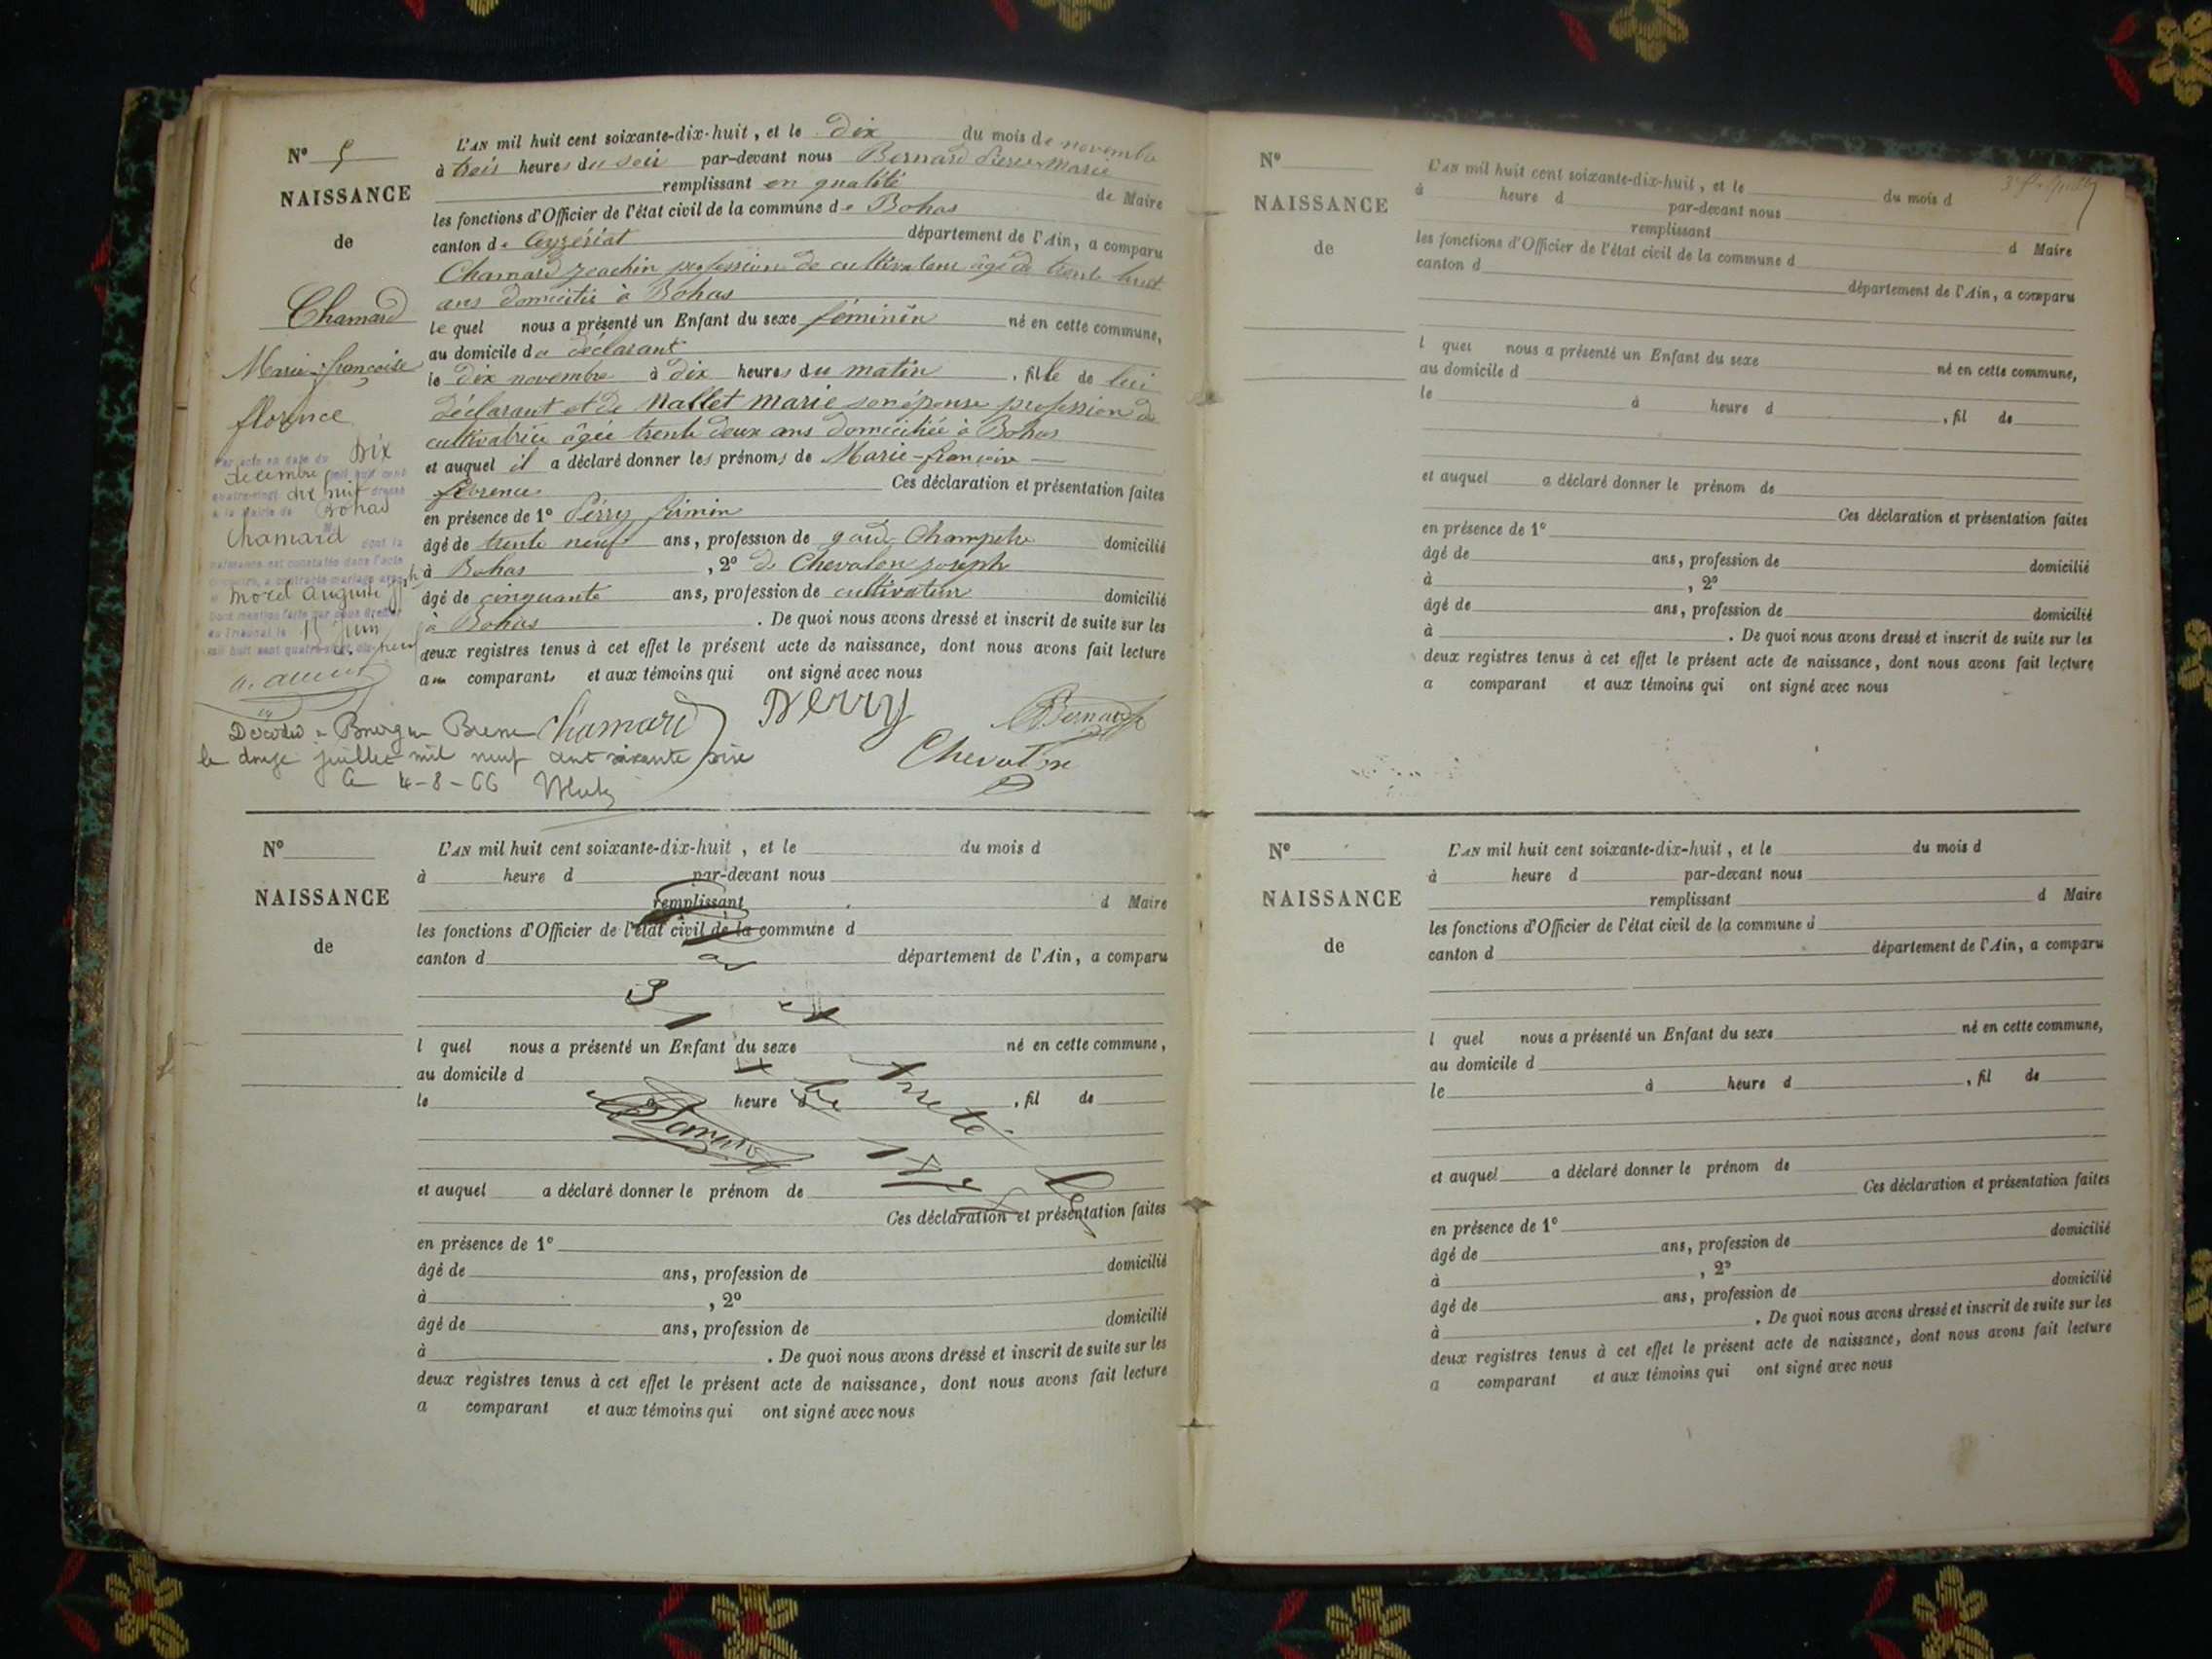 N° 5
NAISSANCE
de
Chamard
Marie-françoise
florence
Par acte en date du Dix
décembre mil huit cent
quatre-vingt dix huit dressé
à la Mairie de Bohas
Chamard dont la
naissance est constatée dans l'acte
ci-contre, a contracté mariage avec
Morel Auguste
Dont mention faite par nous Greffier
au Tribunal le 15 Juin
mil huit cent quatre-vingt dix-neuf
L'AN mil huit cent soixante-dix-huit, et le dix du mois de novembre
à trois heures du soir par-devant nous Bernard Pierre Marie
remplissant en qualité de Maire
les fonctions d'Officier de l'état civil de la commune de Bohas
canton de Ceyzériat département de l'Ain, a comparu
Chamard Joachin profession de cultivateur âgé de trente huit
ans domicilié à Bohas
le quel nous a présenté un Enfant du sexe féminin né en cette commune,
au domicile du déclarant
le dix novembre à dix heures du matin, fille de lui
déclarant et de Mallet Marie son épouse profession de
cultivatrice âgée trente deux ans domiciliée à Bohas
et auquel il a déclaré donner les prénoms de Marie-françoise
florence Ces déclaration et présentation faites
en présence de 1° Perry firmin
âgé de trente neuf ans, profession de garde Champetre domicilié
à Bohas, 2° de Chevalon joseph
âgé de cinquante ans, profession de cultivateur domicilié
à Bohas. De quoi nous avons dressé et inscrit de suite sur les
deux registres tenus à cet effet le présent acte de naissance, dont nous avons fait lecture
aux comparants et aux témoins qui ont signé avec nous
Chamard Perry Bernard
Chevalon
Décédée à Bourg en Bresse
le douze juillet mil neuf cent soixante six
Le 4-8-66
N°
NAISSANCE
de
L'AN mil huit cent soixante-dix-huit, et le du mois d
à heure d par-devant nous
remplissant d Maire
les fonctions d'Officier de l'état civil de la commune d
canton d département de l'Ain, a comparu
l quel nous a présenté un Enfant du sexe né en cette commune,
au domicile d
le heure d, fil de
et auquel a déclaré donner le prénom de
Ces déclaration et présentation faites
en présence de 1°
âgé de ans, profession de domicilié
à, 2°
âgé de ans, profession de domicilié
à. De quoi nous avons dressé et inscrit de suite sur les
deux registres tenus à cet effet le présent acte de naissance, dont nous avons fait lecture
a comparant et aux témoins qui ont signé avec nous
N°
NAISSANCE
de
L'AN mil huit cent soixante-dix-huit, et le du mois d
à heure d par-devant nous
remplissant d Maire
les fonctions d'Officier de l'état civil de la commune d
canton d département de l'Ain, a comparu
l quel nous a présenté un Enfant du sexe né en cette commune,
au domicile d
le à heure d, fil de
et auquel a déclaré donner le prénom de
Ces déclaration et présentation faites
en présence de 1°
âgé de ans, profession de domicilié
à, 2°
âgé de ans, profession de domicilié
à. De quoi nous avons dressé et inscrit de suite sur les
deux registres tenus à cet effet le présent acte de naissance, dont nous avons fait lecture
a comparant et aux témoins qui ont signé avec nous
N°
NAISSANCE
de
L'AN mil huit cent soixante-dix-huit, et le du mois d
à heure d par-devant nous
remplissant d Maire
les fonctions d'Officier de l'état civil de la commune d
canton d département de l'Ain, a comparu
l quel nous a présenté un Enfant du sexe né en cette commune,
au domicile d
le à heure d, fil de
et auquel a déclaré donner le prénom de
Ces déclaration et présentation faites
en présence de 1°
âgé de ans, profession de domicilié
à, 2°
âgé de ans, profession de domicilié
à. De quoi nous avons dressé et inscrit de suite sur les
deux registres tenus à cet effet le présent acte de naissance, dont nous avons fait lecture
a comparant et aux témoins qui ont signé avec nous